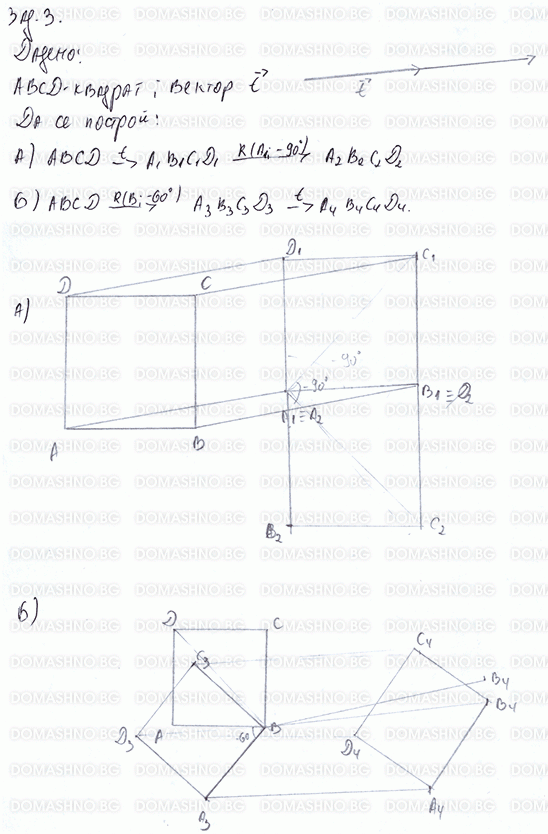 Зад. 3.
Дадено:
ABCD - квадрат ; вектор t⃗
t⃗
Да се построи:
А) ABCD →t A₁B₁C₁D₁ →R(A; -90°) A₂B₂C₂D₂
Б) ABCD →R(B; -60°) A₃B₃C₃D₃ →t A₄B₄C₄D₄.
А)
D C D₁ C₁
-90°
-90°
A₁≡A₂ B₁≡D₂
A B
B₂ C₂
Б)
D C C₄
C₃ B₄
B₄
D₃ A 60° B D₄
A₃ A₄
DOMASHNO.BG